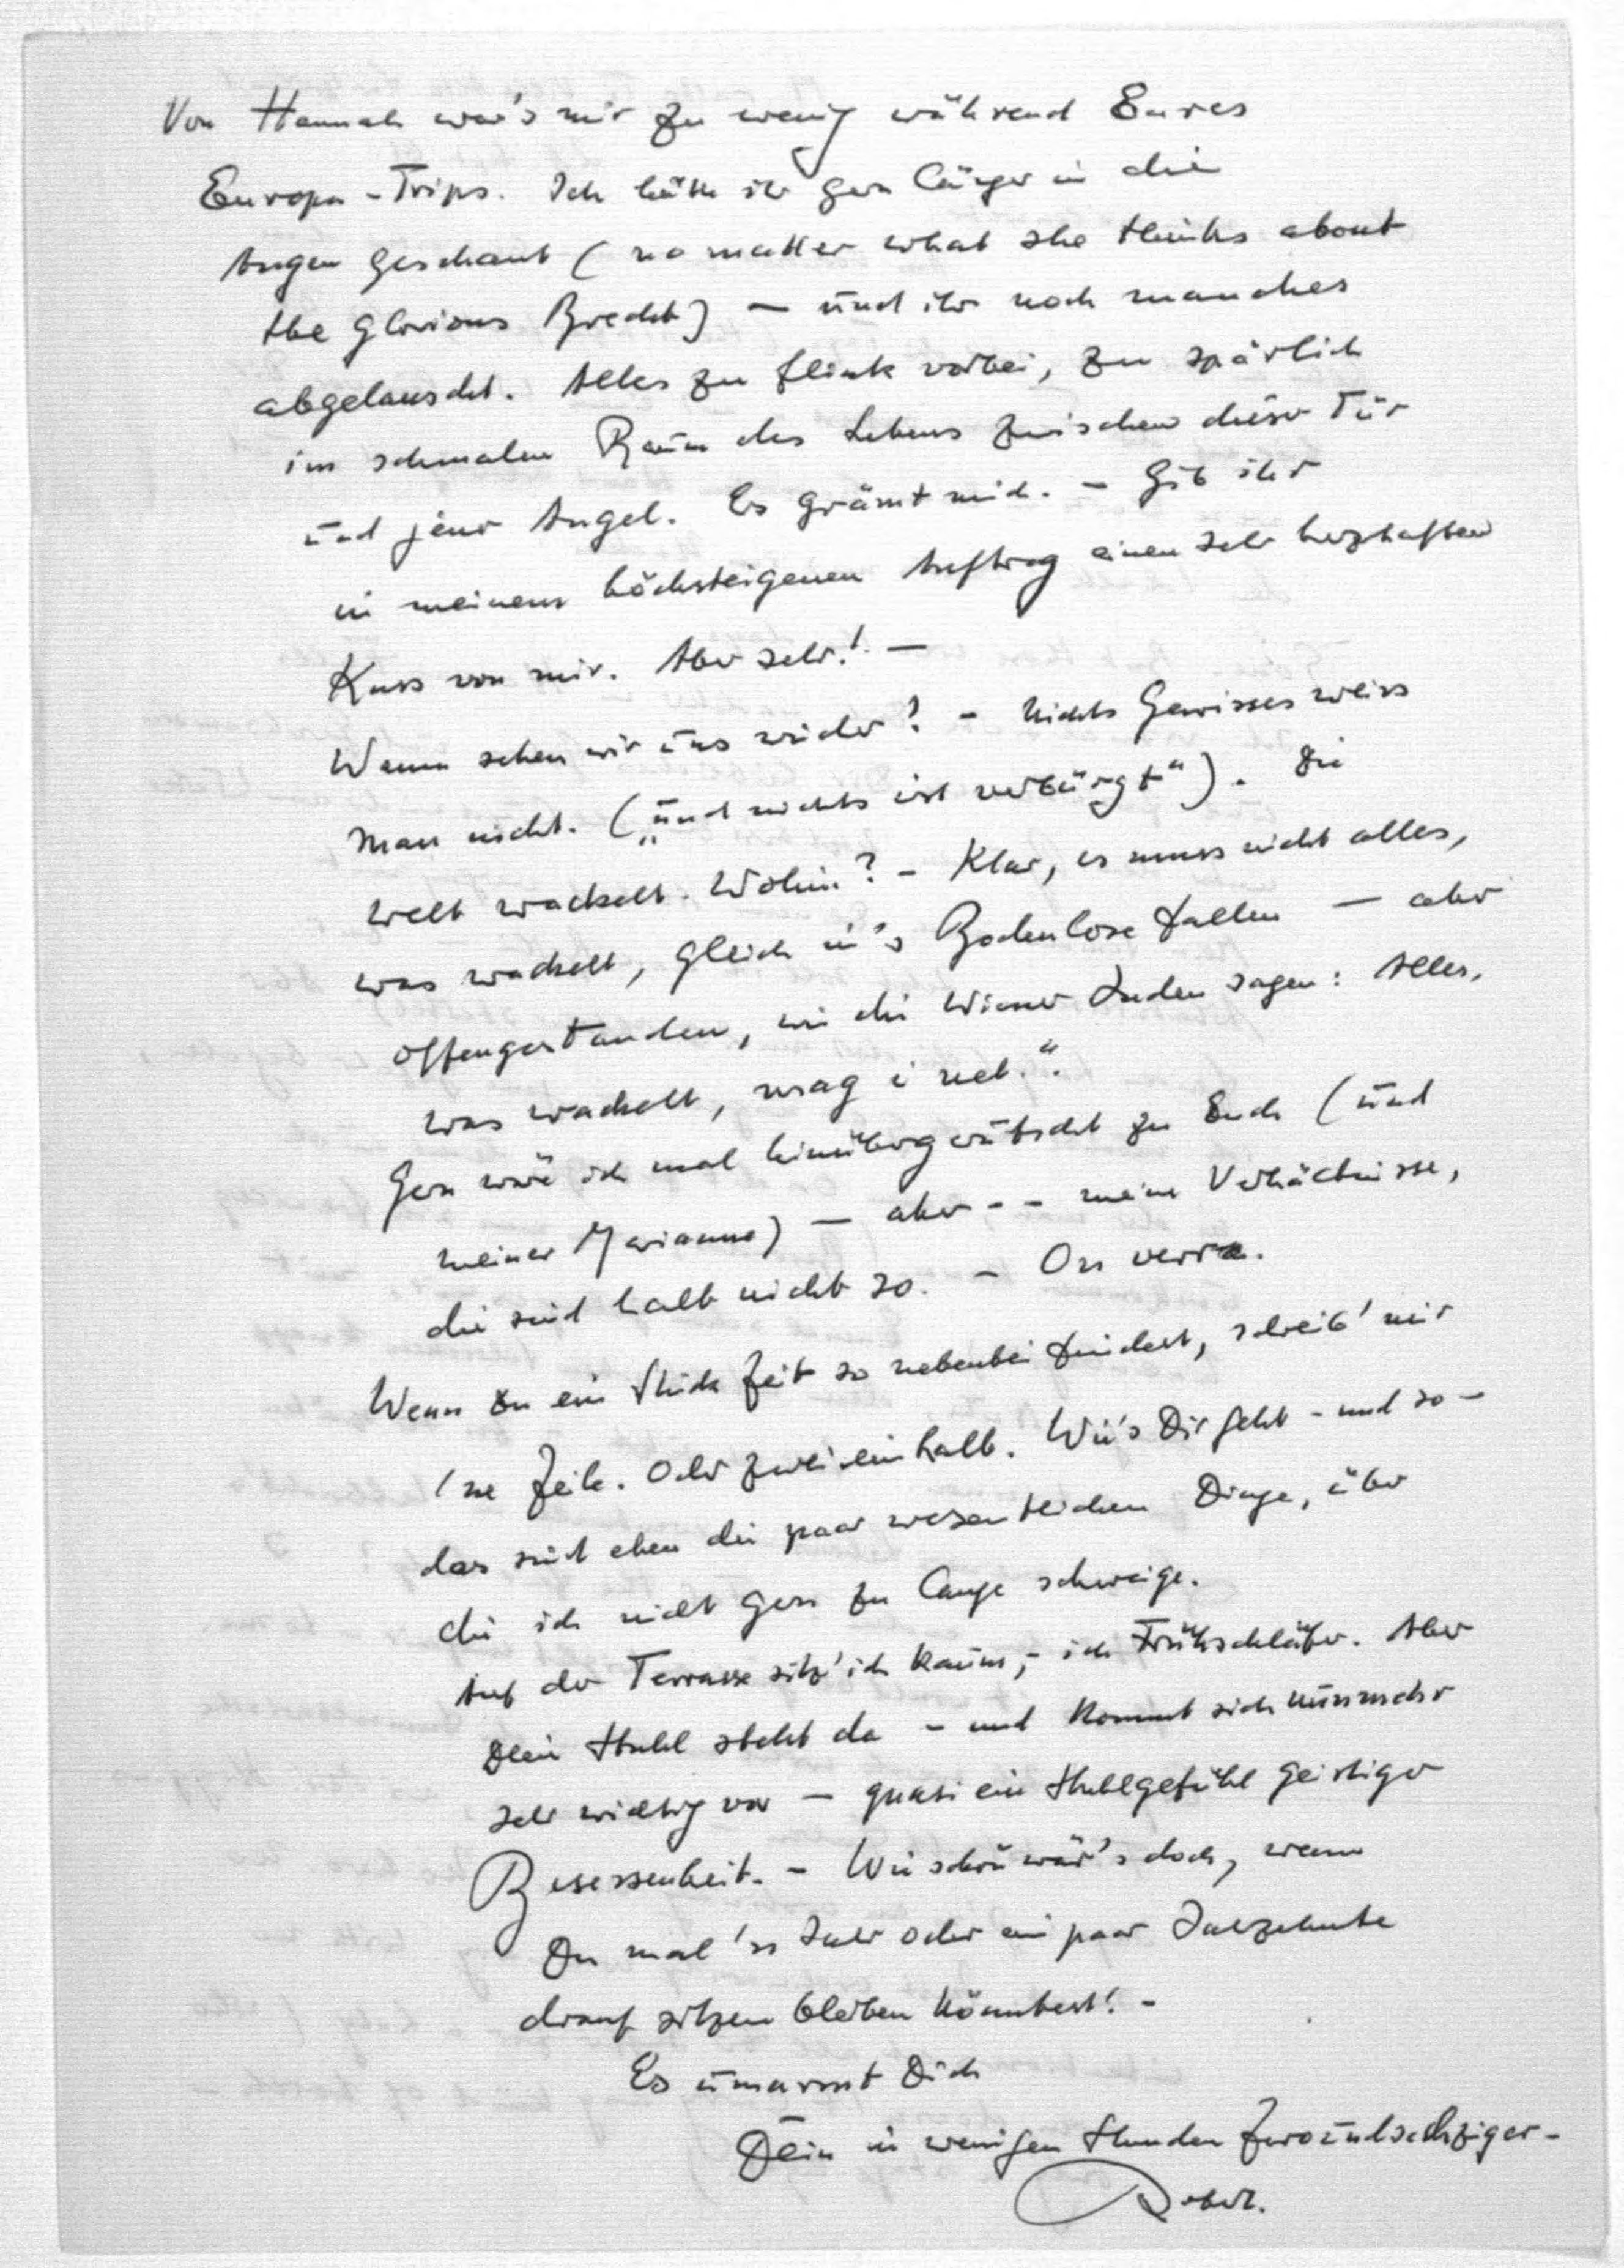 Von Hannah war's mir zu wenig während Eures
Europa-Trips. Ich hätte ihr gern länger in die
Augen geschaut (no matter what she thinks about
the glorious Brecht) — und ihr noch manches
abgelauscht. Alles zu flink vorbei, zu spärlich
im schmalen Raum des Lebens zwischen dieser Tür
und jener Angel. Es grämt mich. – Gib ihr
in meinem höchsteigenen Auftrag einen sehr herzhaften
Kuss von mir. Aber sehr! —
Wann sehen wir uns wieder? – Nichts Gewisses weiss
man nicht. („und nichts ist verbürgt"). Die
Welt wackelt. Wohin? – Klar, es muss nicht alles,
was wackelt, gleich in's Bodenlose fallen — aber
offengestanden, wie die Wiener Juden sagen: Alles,
was wackelt, mag i net.".
Gern wäre ich mal hinübergerutscht zu Euch (und
meiner Marianne) — aber - - meine Verhältnisse,
die sind halt nicht so. – On verra.
Wenn Du ein Stück Zeit so nebenbei findest, schreib' mir
'ne Zeile. Oder zweieinhalb. Wie's Dir geht - und so –
das sind eben die paar wesentlichen Dinge, über
die ich nicht gern zu lange schweige.
Auf der Terrasse sitz' ich kaum, – ich Frühschläfer. Aber
Dein Stuhl steht da – und kommt sich nunmehr
sehr wichtig vor — quasi ein Stuhlgefühl geistiger
Besessenheit. – Wie schön wär's doch, wenn
Du mal 'n Jahr oder ein paar Jahrzehnte
drauf sitzen bleiben könntest! -
Es umarmt Dich
Dein in wenigen Stunden Zwoundsechziger –
Robert.